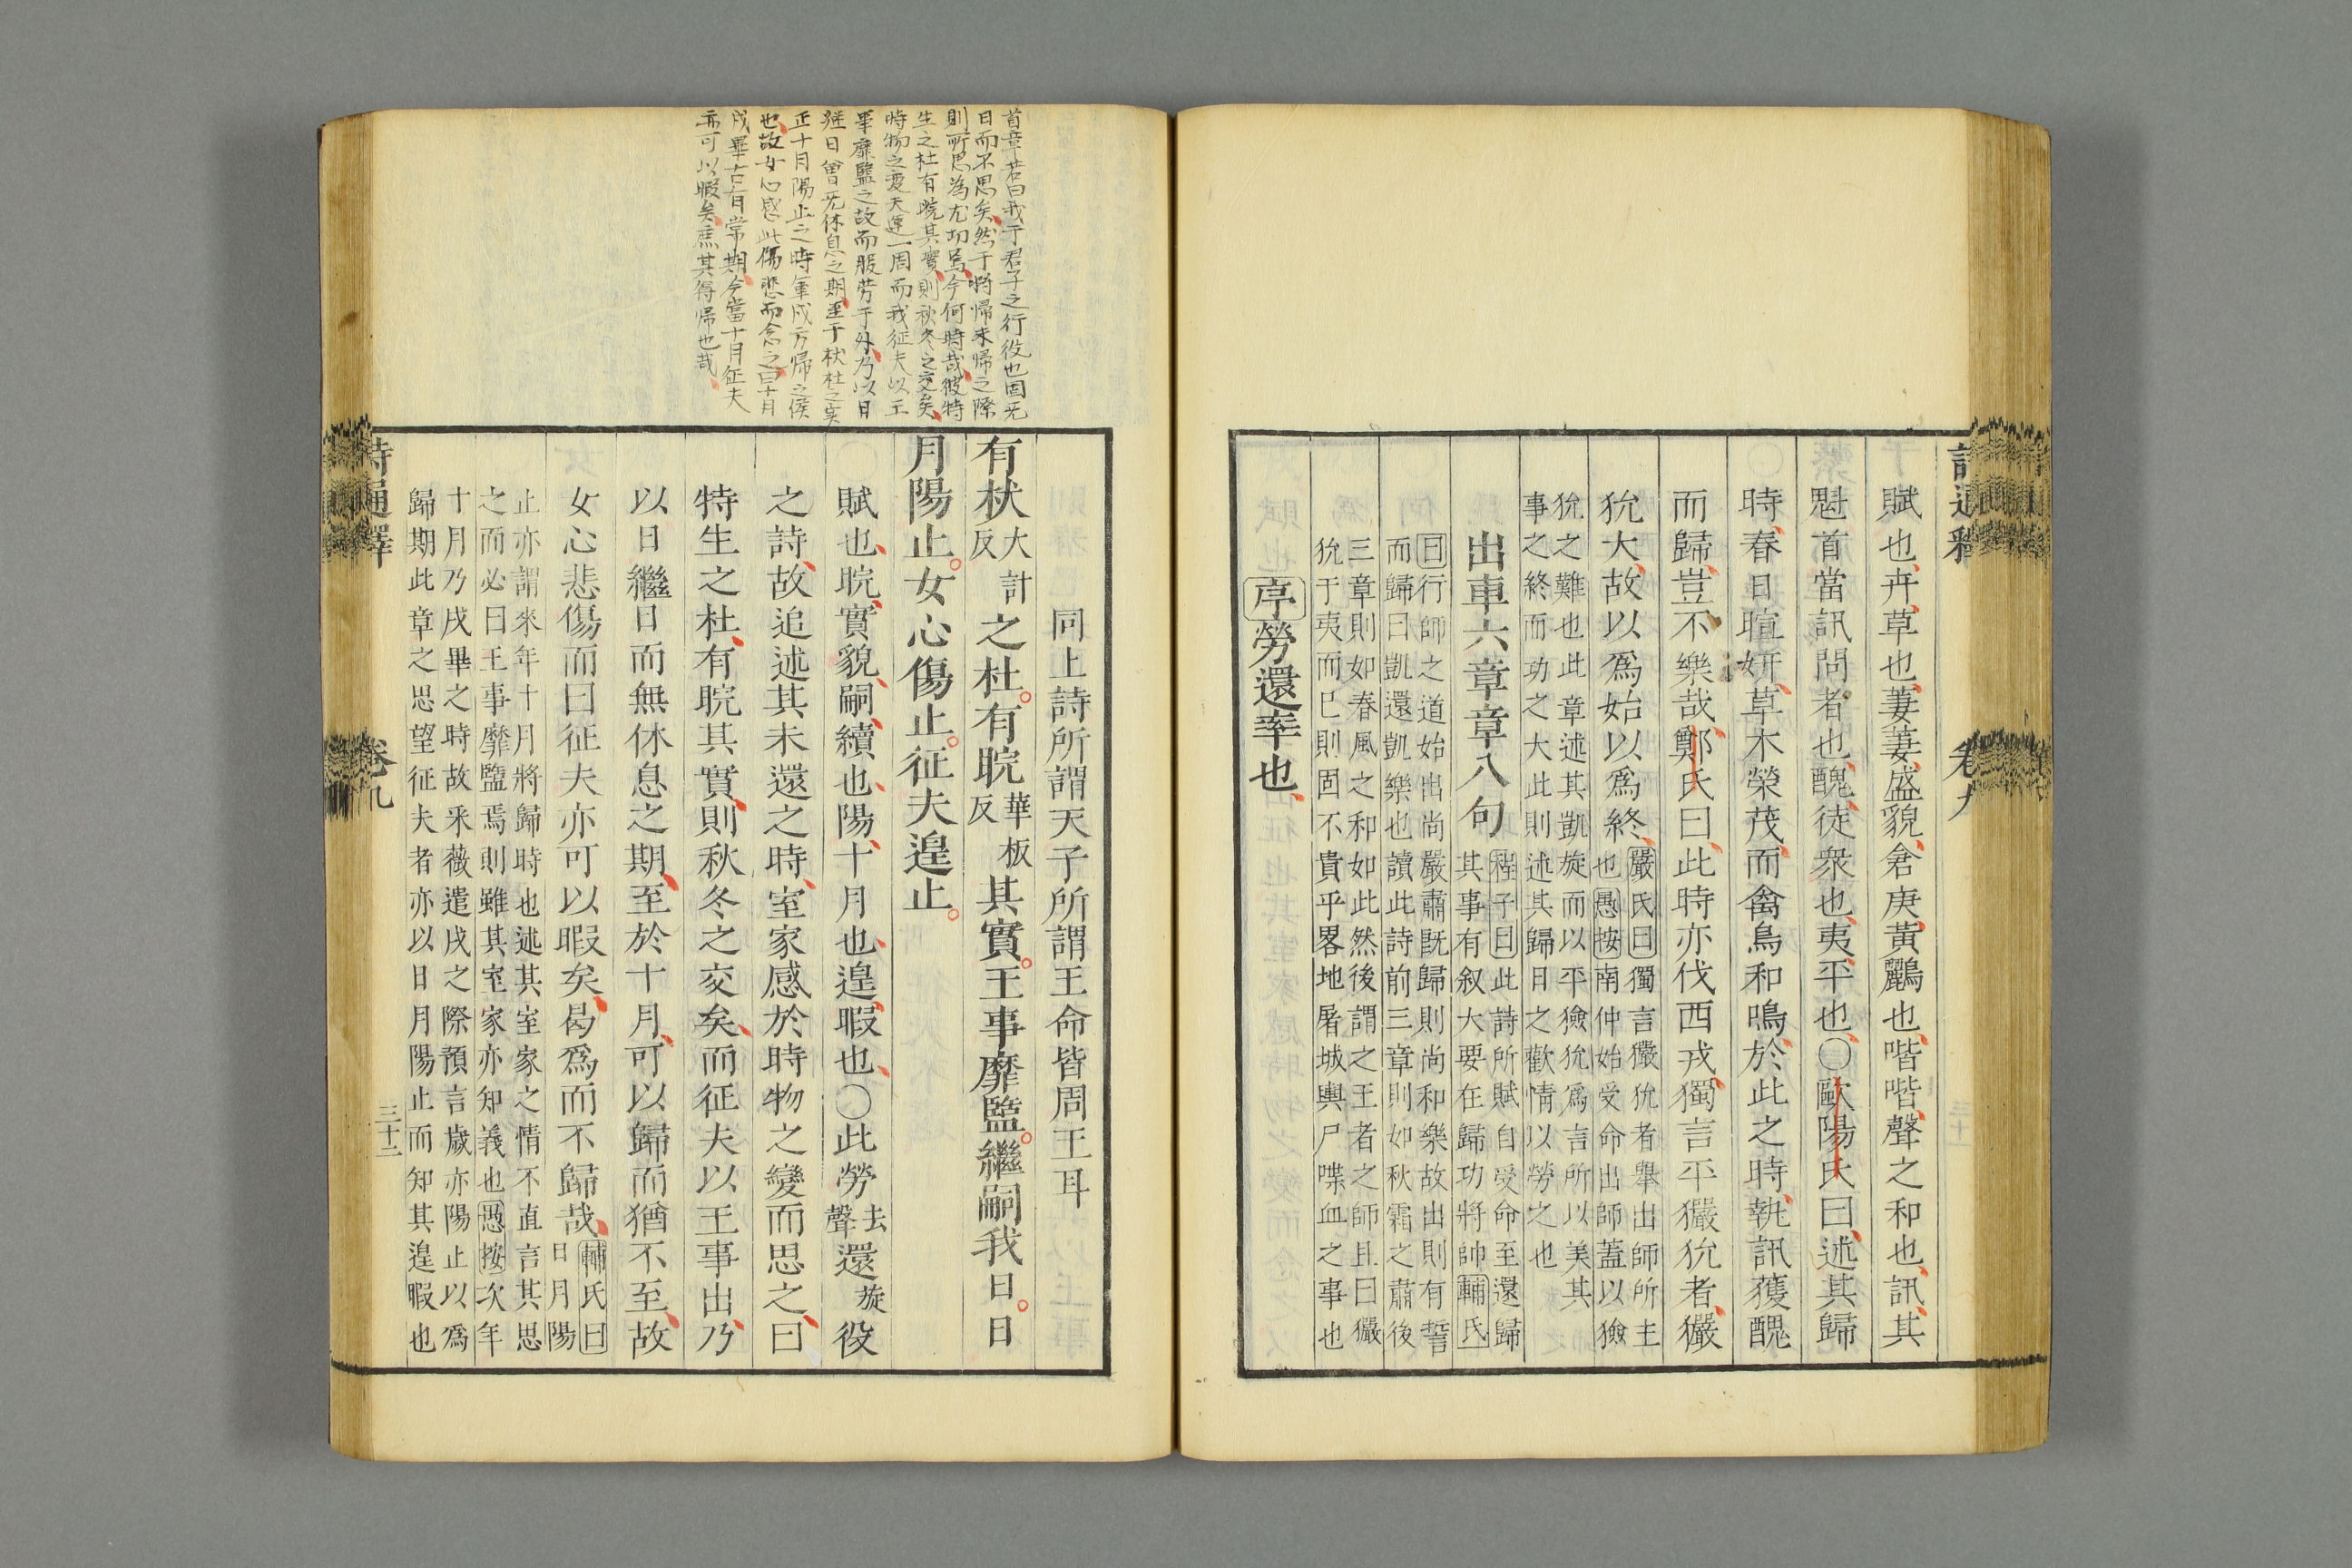 賦也卉草也萋萋盛貌倉庚黃鸝也喈喈聲之和也訊其
魁首當訊問者也醜徒衆也夷平也○歐陽氏曰述其歸
時春日暄妍草木榮茂而禽鳥和鳴於此之時執訊獲醜
而歸豈不樂哉鄭氏曰此時亦伐西戎獨言平玁狁者玁
狁大故以爲始以爲終
嚴氏曰獨言玁狁者舉出師所主
也愚按南仲始受命出師蓋以獫
狁之難也此章述其凱旋而以平獫狁爲言所以美其
事之終而功之大此則述其歸日之歡情以勞之也
出車六章章八句
程子曰此詩所賦自受命至還歸
其事有叙大要在歸功將帥輔氏
曰行師之道始出尚嚴肅旣歸則尚和樂故出則有誓
而歸曰凱還凱樂也讀此詩前三章則如秋霜之肅後
三章則如春風之和如此然後謂之王者之師且曰玁
狁于夷而已則固不貴乎畧地屠城輿尸喋血之事也
序勞還率也
同上詩所謂天子所謂王命皆周王耳
有杕大計反之杜有睆華板反其實王事靡盬繼嗣我日日
月陽止女心傷止征夫遑止
賦也睆實貌嗣續也陽十月也遑暇也○此勞去聲還旋役
之詩故追述其未還之時室家感於時物之變而思之曰
特生之杜有睆其實則秋冬之交矣而征夫以王事出乃
以日繼日而無休息之期至於十月可以歸而猶不至故
女心悲傷而曰征夫亦可以暇矣曷爲而不歸哉
輔氏曰
日月陽
止亦謂來年十月將歸時也述其室家之情不直言其思
之而必曰王事靡盬焉則雖其室家亦知義也愚按次年
十月乃戍畢之時故采薇遣戍之際預言歲亦陽止以爲
歸期此章之思望征夫者亦以日月陽止而知其遑暇也
卷九
三十二
首章若曰我于君子之行役也固无
日而不思矣然于將帰未帰之際
則所思為尤切焉今何時哉彼特
生之杜有睆其實則秋冬之交矣
時物之变天運一周而我征夫以王
事靡盬之故而服劳于外乃以日
継日曾无休息之期至于杕杜之实
正十月陽止之時軍戍方帰之候
也故女心感此傷悲而念之曰十月
戍畢古有常期今當十月征夫
亦可以暇矣庶其得帰也哉